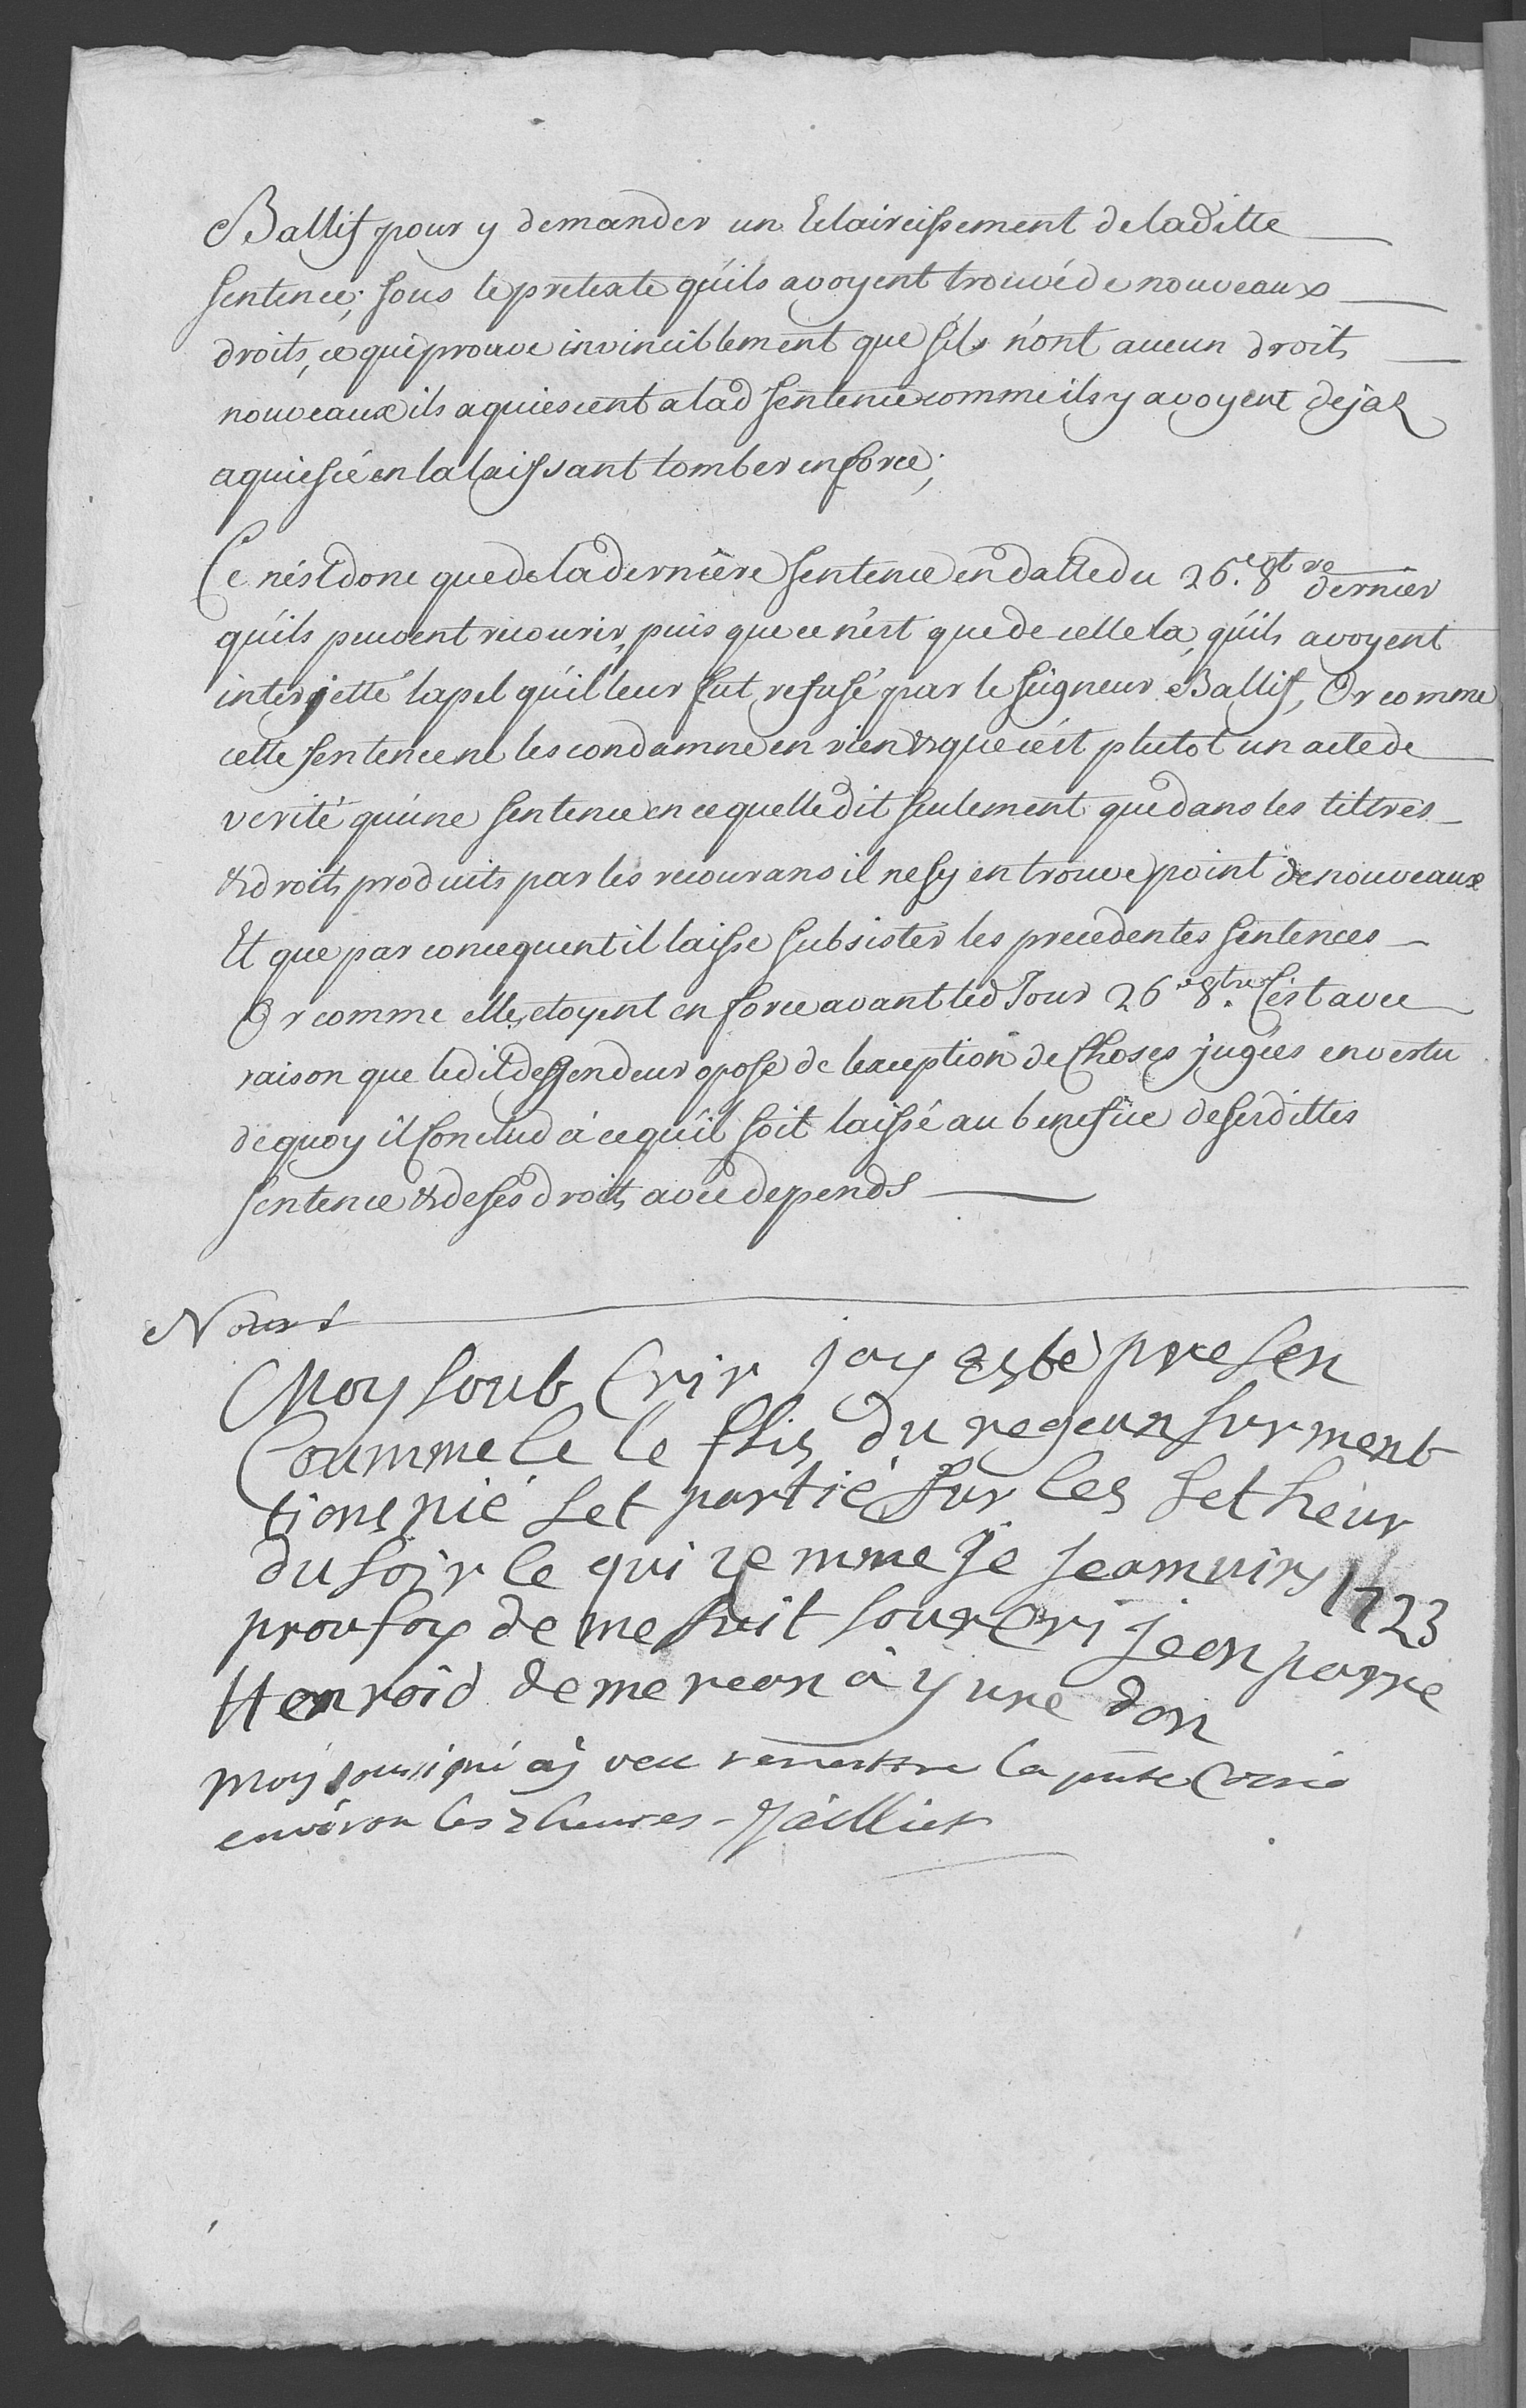 Ballif pour y demander un Eclaircissement de laditte
sentence; sous le pretexte qu'ils avoyent trouvé de nouveaux
droits, ce qui prouve invinciblement que s'ils n'ont aucun droits
nouveaux ils aquiescent a lad sentence comme ils y avoyent deja
aquiescé en la laissant tomber en force;
Ce n'est donc que de la derniere sentence en datte du 26.e 8bre dernier
qu'ils peuvent recourir, puis que ce n'est que de celle la, qu'ils avoyent
interjetté lapel qu'il leur fut refusé par le seigneur Ballif, Or comme
cette sentence ne les condamne en rien & que c'est plutot un acte de
verité qu'une sentence en ce quelle dit seulement que dans les tittres
& droits produits par les recourans il ne sy en trouve point de nouveaux
Et que par concequent il laisse subsister les precedentes sentences
Or comme elles etoyent en force avant led Jour 26e 8bre C'est avec
raison que ledit deffendeur opose de lexception de Choses jugées en vertu
de quoy il Conclud à ce qu'il soit laissé au benefice desesdittes
sentence & de ses droits avec depends
Moy soub Crir jay esté presen
Coumme le le fhis du regean surment
tionnié set partie sur les set heur
du soir le quizemme je jeamvirs 1723
prou foy de me suit souscri jean parre
Henroid de me rean à y une don
Moy soussigné ay veu remettre la pnte Copie
environ les 7 heures - Jailliet